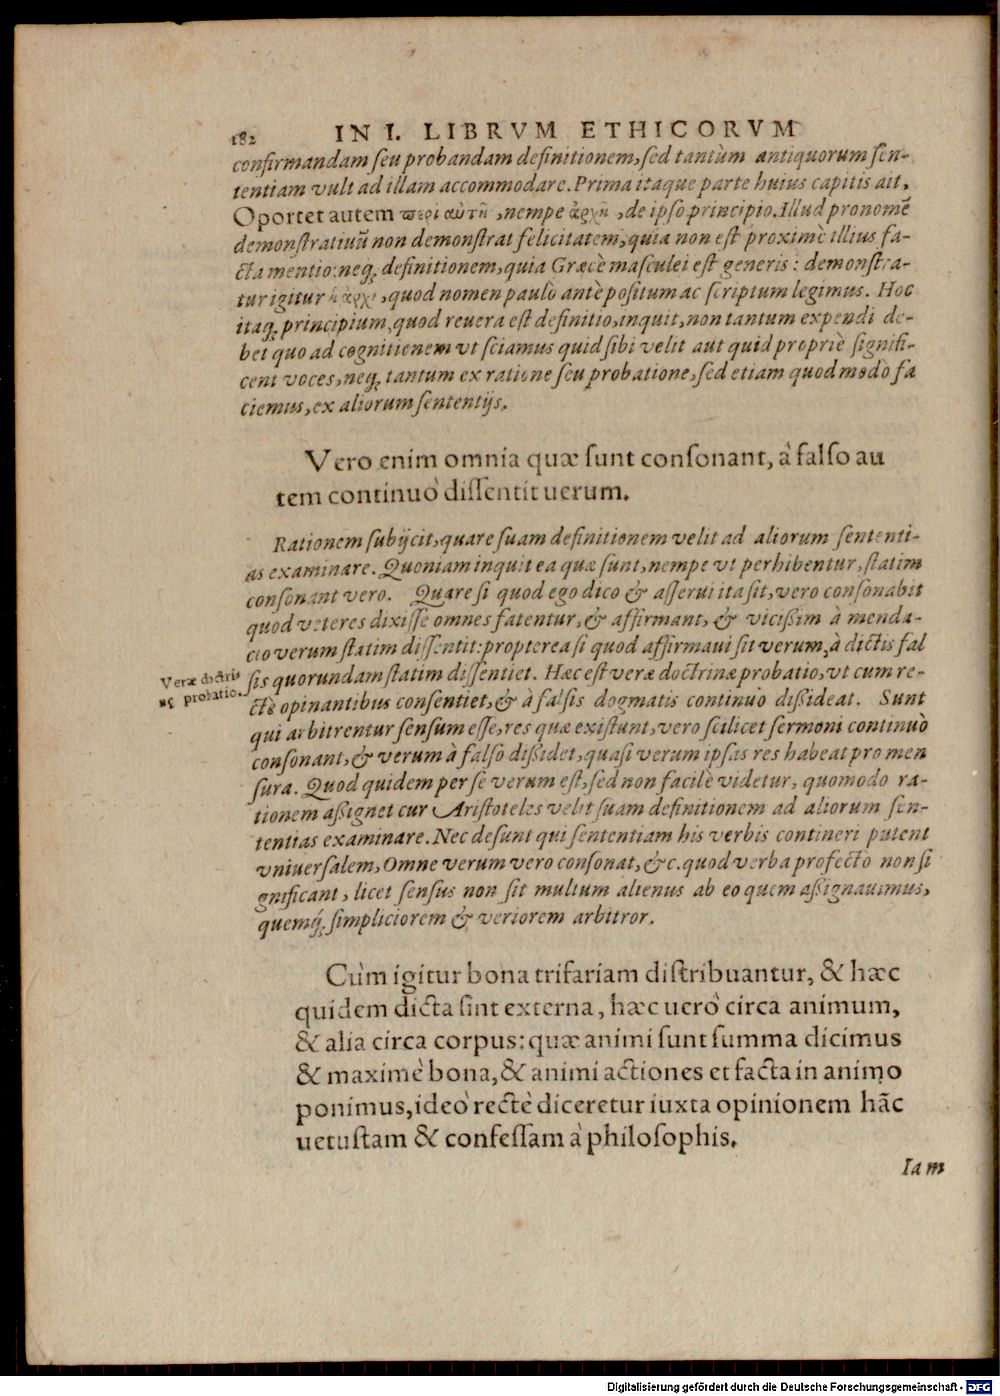 182 IN I. LIBRVM ETHICORVM
confirmandam ſeu probandam definitionem, ſed tantùm antiquorum ſen-
tentiam vult ad illam accommodare. Prima itaque parte huius capitis ait,
Oportet autem περὶ αὐτῆ, nempe ἀρχῆ, de ipſo principio. Illud pronomẽ
demonſtratiuũ non demonſtrat felicitatem, quia non eſt proximè illius fa-
cta mentio: neq; definitionem, quia Græcè maſculei eſt generis: demonſtra-
tur igitur ἡ ἀρχὴ, quod nomen paulò antè poſitum ac ſcriptum legimus. Hoc
itaq; principium, quod reuera eſt definitio, inquit, non tantum expendi de-
bet quo ad cognitionem vt ſciamus quid ſibi velit aut quid propriè ſignifi-
cent voces, neq; tantum ex ratione ſeu probatione, ſed etiam quod modò fa
ciemus, ex aliorum ſententijs.
Vero enim omnia quæ ſunt conſonant, à falſo au
tem continuò diſſentit uerum.
Rationem ſubijcit, quare ſuam definitionem velit ad aliorum ſententi-
as examinare. Quoniam inquit ea quæ ſunt, nempe vt perhibentur, ſtatim
conſonant vero. Quare ſi quod ego dico & aſſerui ita ſit, vero conſonabit
quod veteres dixiſſe omnes fatentur, & affirmant, & viciſſim à menda-
cio verum ſtatim diſſentit: propterea ſi quod affirmaui ſit verum, à dictis fal
ſis quorundam ſtatim diſſentiet. Hæc eſt veræ doctrinæ probatio, vt cum re-
Veræ doctri
næ probatio.
ctè opinantibus conſentiet, & à falſis dogmatis continuò dißideat. Sunt
qui arbitrentur ſenſum eſſe, res quæ exiſtunt, vero ſcilicet ſermoni continuò
conſonant, & verum à falſo dißidet, quaſi verum ipſas res habeat pro men
ſura. Quod quidem per ſe verum eſt, ſed non facilè videtur, quomodo ra-
tionem aßignet cur Ariſtoteles velit ſuam definitionem ad aliorum ſen-
tentias examinare. Nec deſunt qui ſententiam his verbis contineri putent
vniuerſalem, Omne verum vero conſonat, &c. quod verba profectò non ſi
gnificant, licet ſenſus non ſit multum alienus ab eo quem aßignauimus,
quemq; ſimpliciorem & veriorem arbitror.
Cùm igitur bona trifariam diſtribuantur, & hæc
quidem dicta ſint externa, hæc uerò circa animum,
& alia circa corpus: quæ animi ſunt ſumma dicimus
& maximè bona, & animi actiones et facta in animo
ponimus, ideò rectè diceretur iuxta opinionem hãc
uetuſtam & confeſſam à philoſophis.
Iam
Digitalisierung gefördert durch die Deutsche Forschungsgemeinschaft - DFG